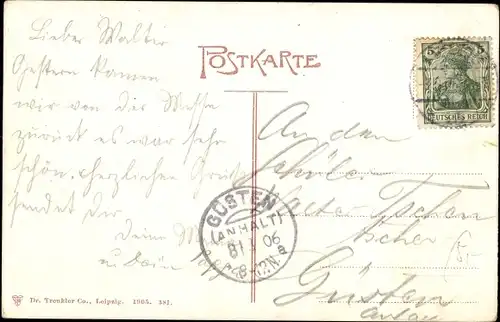 Lieber Walter
POSTKARTE
5 5
DEUTSCHES REICH
Gestern kamen
wir von der Messe
zurück es war sehr
schön. herzlichen Gruß
sendet dir
deine
An den
Schüler
Walter
in
Güsten
Anhalt
GÜSTEN
(ANHALT)
06
8-12N.
a
Dr. Trenkler Co., Leipzig. 1905. 381.